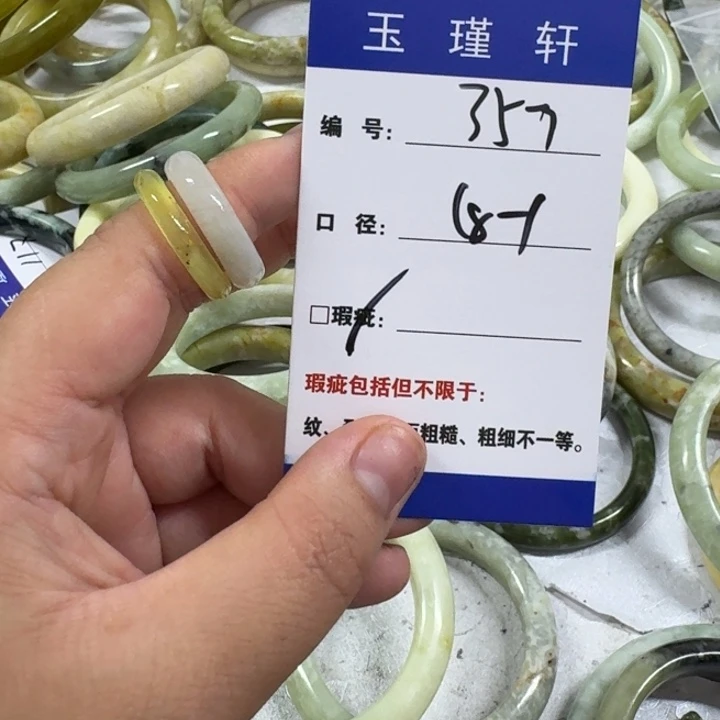 玉瑾轩
编号: 357
口径: 
□瑕疵:
瑕疵包括但不限于:
纹、粗糙、粗细不一等。